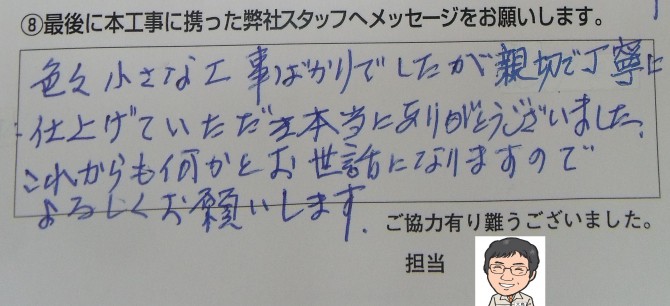 ⑧最後に本工事に携った弊社スタッフへメッセージをお願いします。
色々小さな工事ばかりでしたが親切で丁寧に
仕上げていただき本当にありがとうございました。
これからも何かとお世話になりますので
よろしくお願いします。
ご協力有り難うございました。
担当